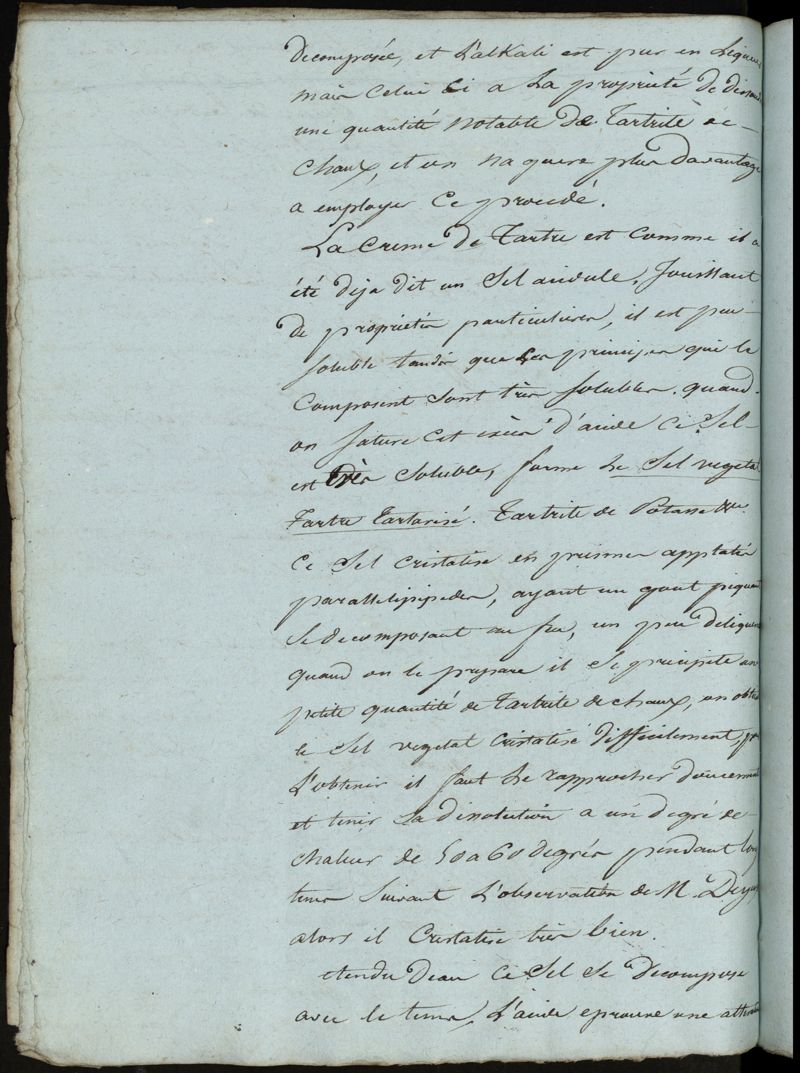 decomposée, et L'alkali est pur en Liqueur
mais Celui Ci a La proprieté De dissoud
une quantité notable De Tartrite de
Chaux, et on n'a guere plus Davantage
a employer Ce procedé.
La Creme De Tartre est Comme il a
été deja dit un Sel acidule, Jouissant
de proprietés particulieres, il est peu
soluble tandis que Les principes qui le
Composent sont très solubles. quand
on sature cet excès d'acide ce Sel
est très soluble, forme le Sel vegetal
Tartre Tartarisé. Tartrite de Potasse &c.
Ce Sel Cristalise en prismes applatis
parallelipipedes, ayant un gout piquant
se decomposant au feu, un peu deliques
quand on le prepare il se precipite une
petite quantité de Tartrite de chaux, on obtient
le Sel vegetal Cristalisé difficilement, pr
L'obtenir il faut le rapprocher doucement
et tenir La dissolution a un degré de
chaleur de 50 a 60 degrés pendant long
tems suivant L'observation de M. Deyeux
alors il Cristalise très bien.
etendu d'eau Ce Sel se Decompose
avec le tems, L'acide eprouve une alter